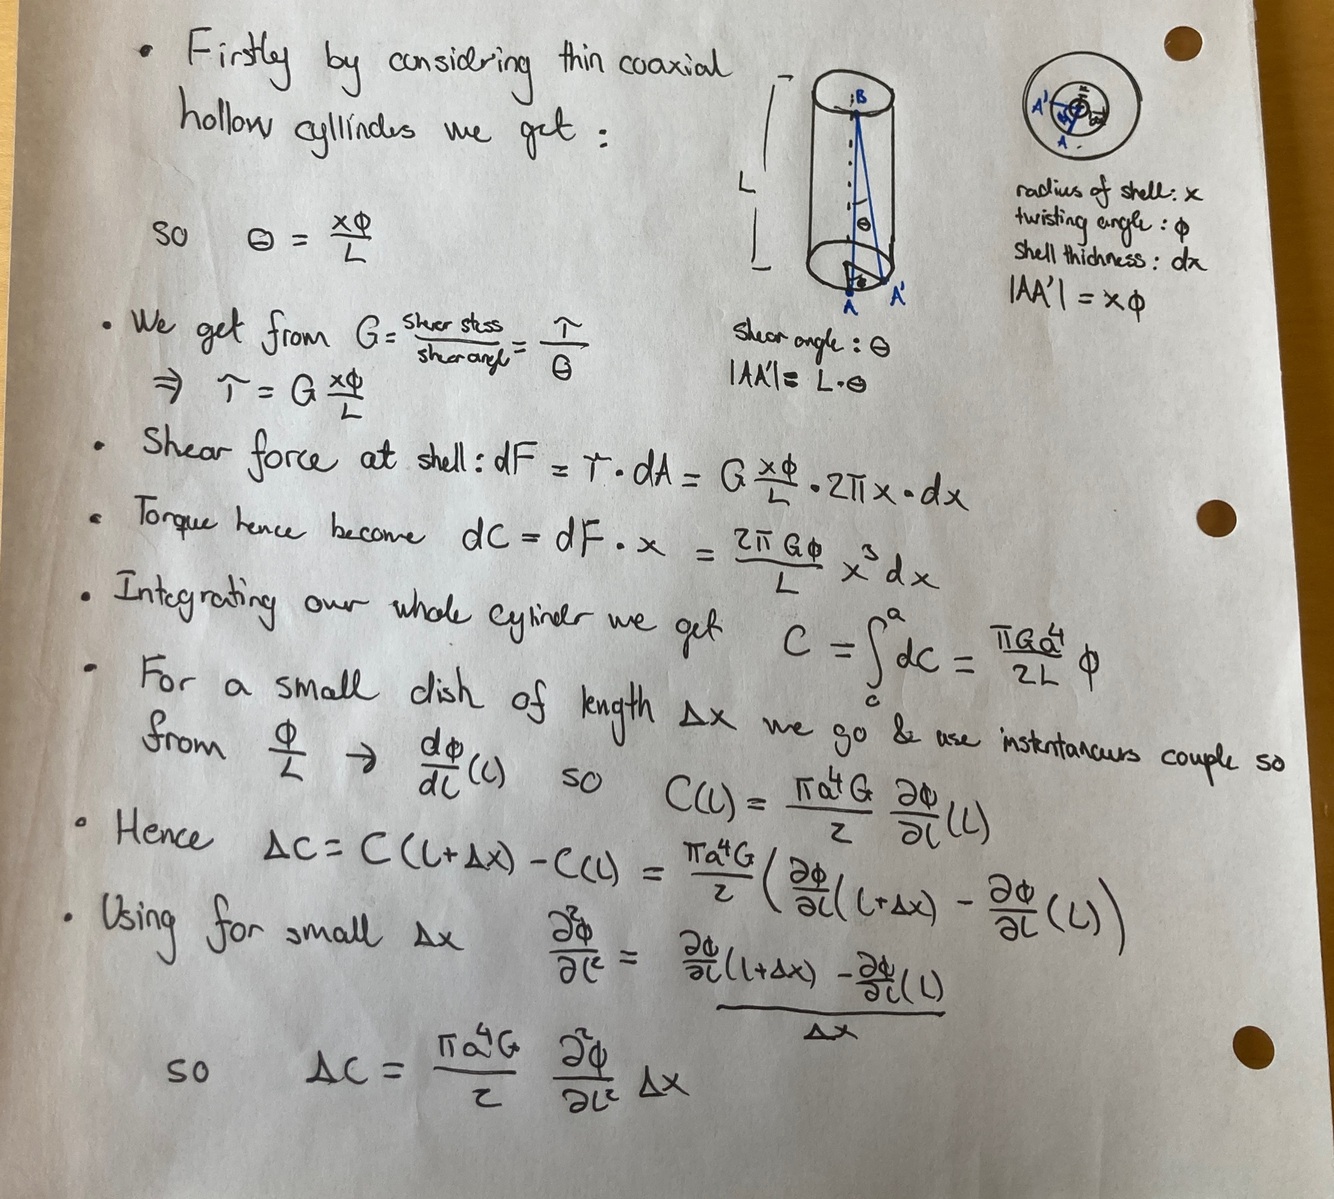 • Firstly by considring thin coaxial
hollow cyllindes we get :
so θ = xΦ/L
L
B
θ
Φ
A
A'
shear angle : θ
|AA'| = L·θ
A'
A
radius of shell: x
twisting angle : Φ
shell thichness : dx
|AA'| = xΦ
• We get from G = shear stess/shear angl = τ/θ
⇒ τ = G xΦ/L
• Shear force at shell : dF = τ · dA = G xΦ/L · 2πx · dx
• Torque hence become dC = dF · x = 2πGΦ/L x³dx
• Integrating over whole cylinder we get C = ∫₀ᵃ dC = πGa⁴/2L Φ
• For a small dish of length Δx we go & use instentaneurs couple so
from Φ/L → dΦ/dL (L) so C(L) = πa⁴G/2 ∂Φ/∂L (L)
• Hence ΔC = C(L+Δx) - C(L) = πa⁴G/2 (∂Φ/∂L (L+Δx) - ∂Φ/∂L (L))
• Using for small Δx ∂²Φ/∂L² = (∂Φ/∂L (L+Δx) - ∂Φ/∂L (L))/Δx
so ΔC = πa⁴G/2 ∂²Φ/∂L² Δx